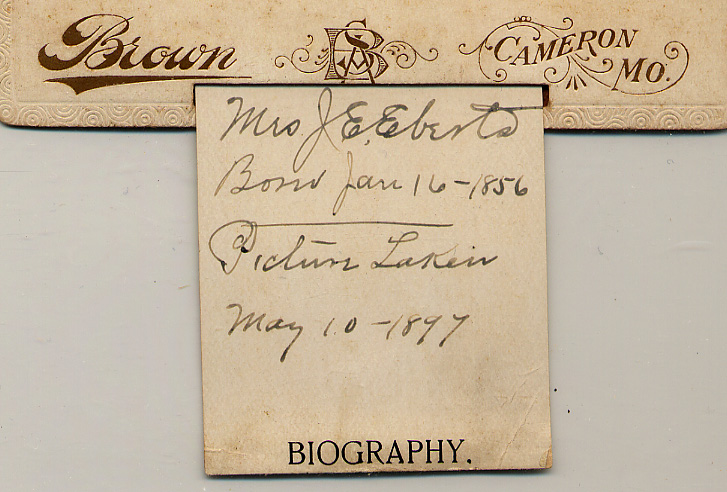 Brown
CAMERON
MO.
Mrs J. E. Eberts
Born Jan 16-1856
Picture Taken
May 10-1897
BIOGRAPHY.